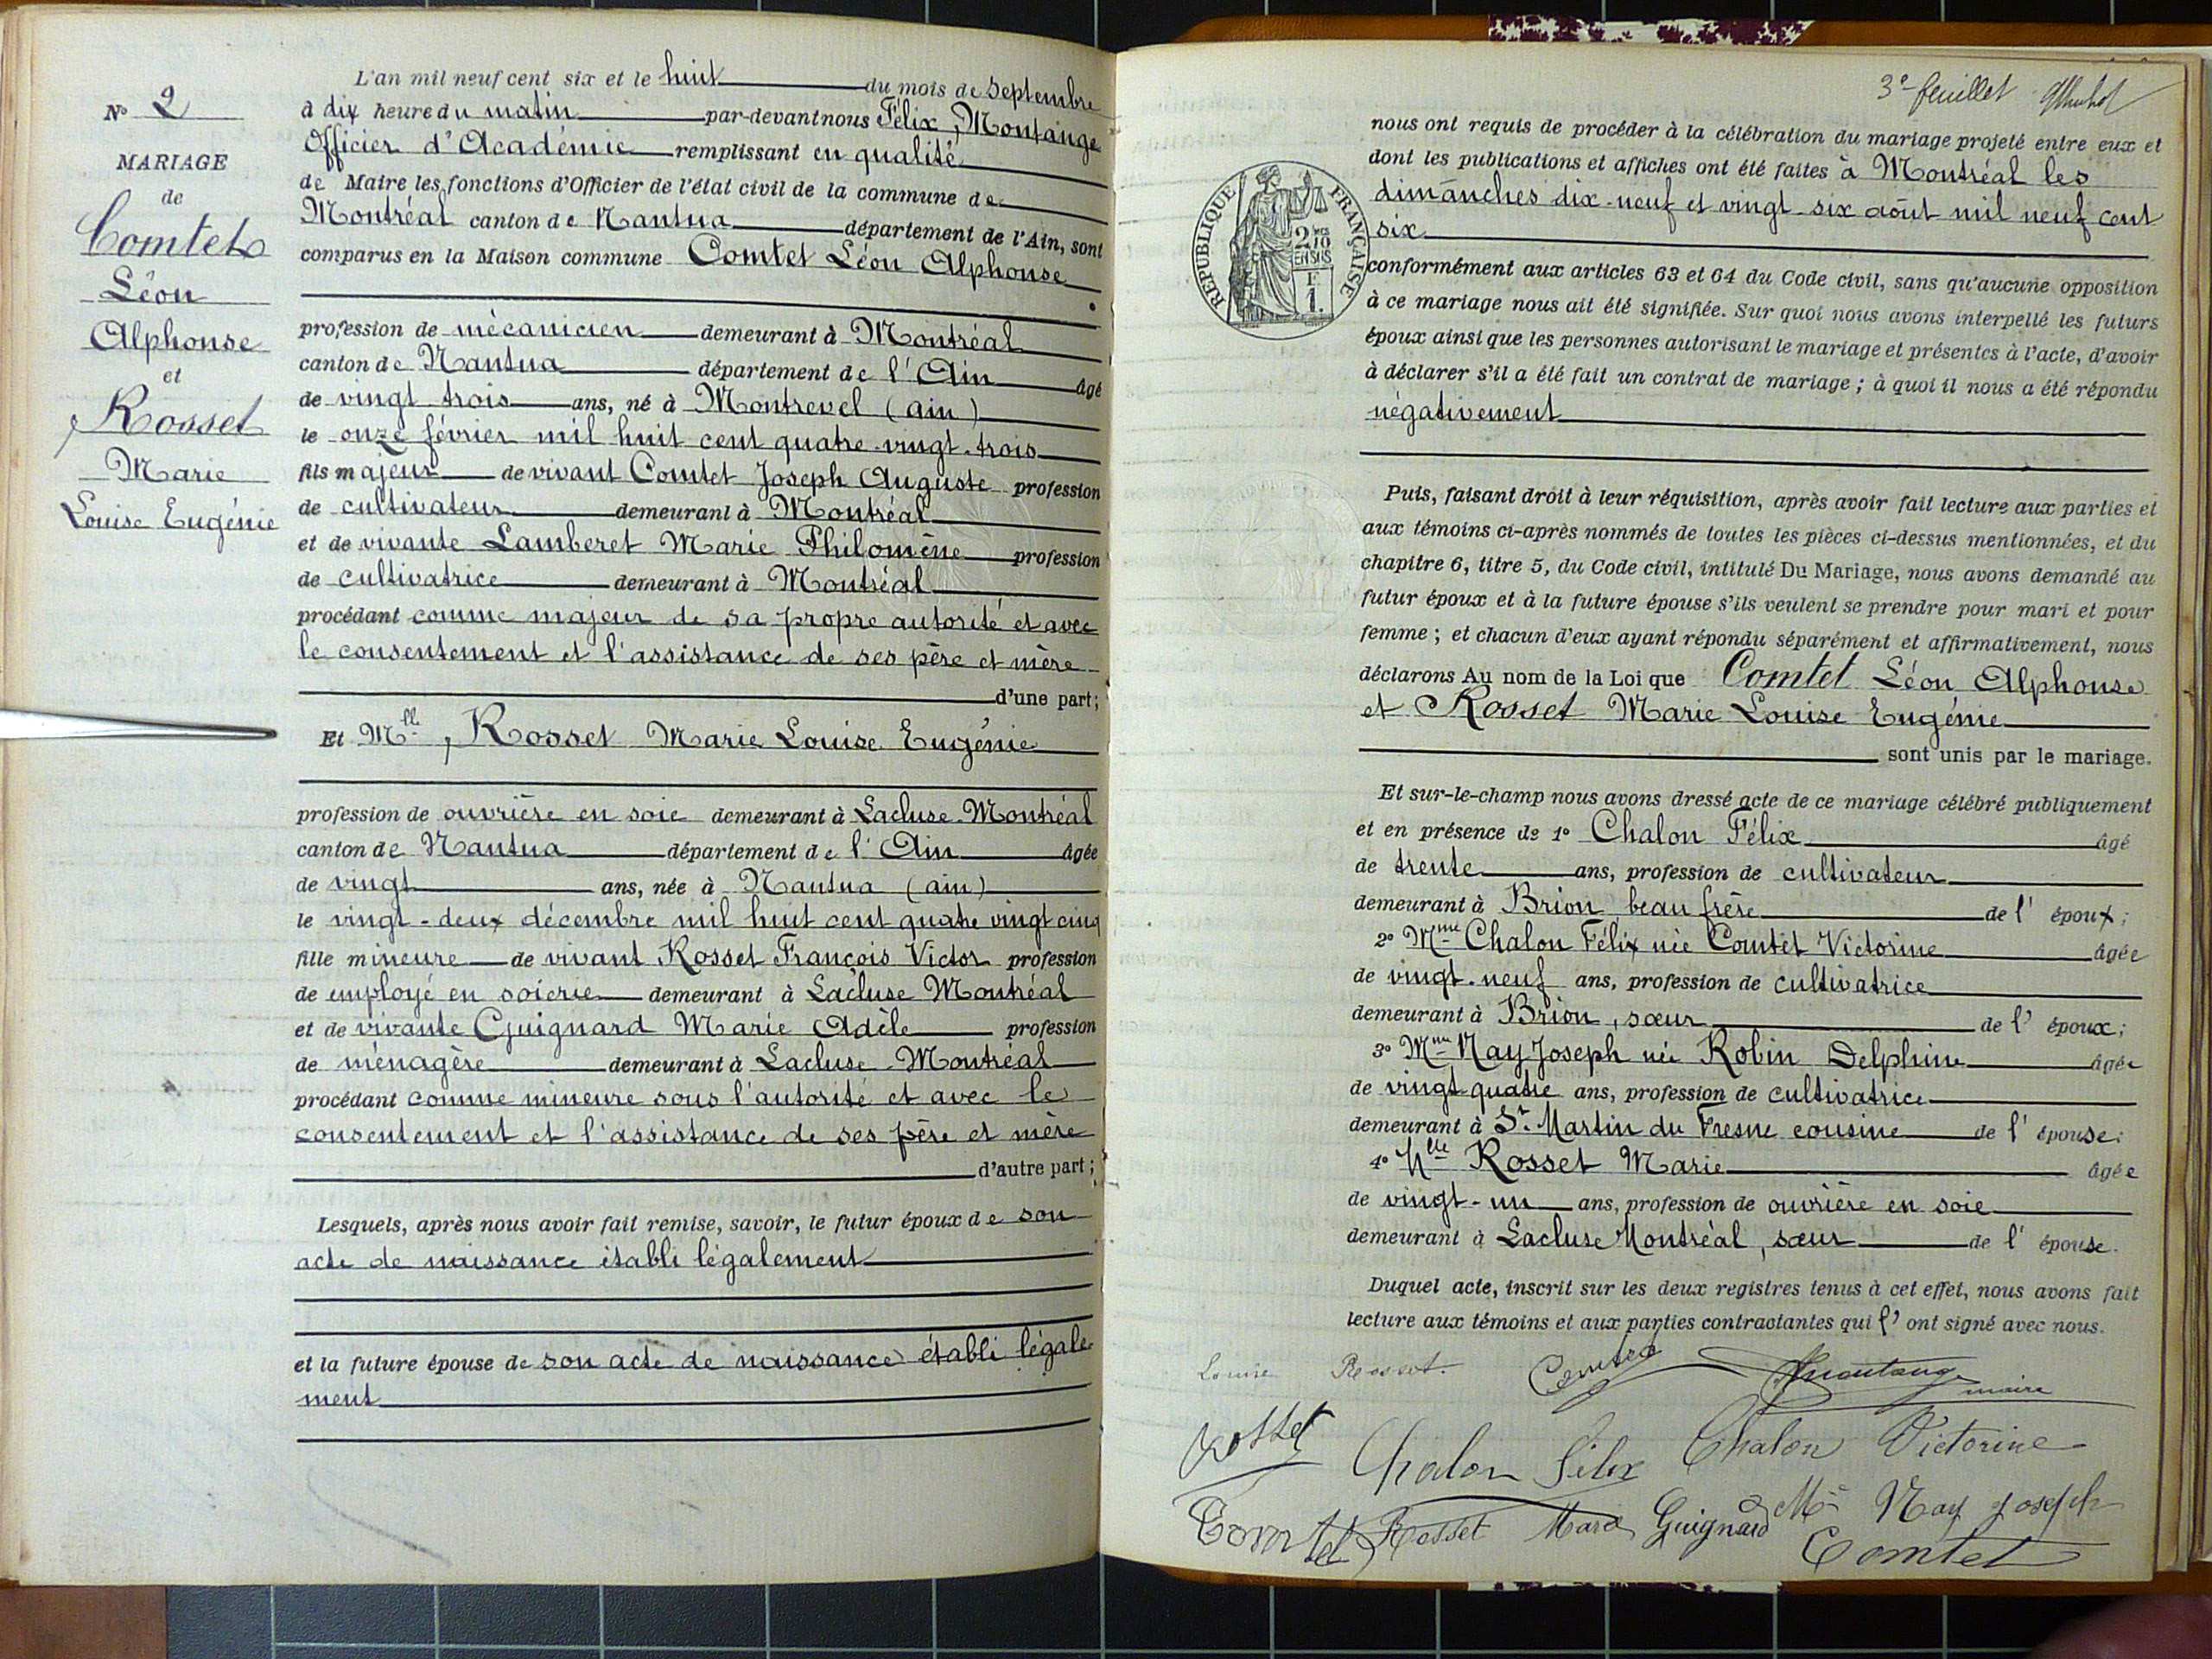 N° 2
MARIAGE
de
Comtet
Léon
Alphonse
et
Rosset
Marie
Louise Eugénie
L'an mil neuf cent six et le huit du mois de Septembre
à dix heure du matin par-devant nous Félix, Montange
Officier d'Académie remplissant en qualité
de Maire les fonctions d'Officier de l'état civil de la commune de
Montréal canton de Nantua département de l'Ain, sont
comparus en la Maison commune Comtet Léon Alphonse
profession de mécanicien demeurant à Montréal
canton de Nantua département de l'Ain âgé
de vingt trois ans, né à Montrevel (ain)
le onze février mil huit cent quatre-vingt-trois
fils majeur de vivant Comtet Joseph Auguste profession
de cultivateur demeurant à Montréal
et de vivante Lamberet Marie Philomène profession
de cultivatrice demeurant à Montréal
procédant comme majeur de sa propre autorité et avec
le consentement et l'assistance de ses père et mère
d'une part;
Et Mlle, Rosset Marie Louise Eugénie
profession de ouvrière en soie demeurant à Lacluse-Montréal
canton de Nantua département de l'Ain âgée
de vingt ans, née à Nantua (ain)
le vingt-deux décembre mil huit cent quatre vingt cinq
fille mineure de vivant Rosset François Victor profession
de employé en soierie demeurant à Lacluse Montréal
et de vivante Guignard Marie Adèle profession
de ménagère demeurant à Lacluse-Montréal
procédant comme mineure sous l'autorité et avec le
consentement et l'assistance de ses père et mère
d'autre part;
Lesquels, après nous avoir fait remise, savoir, le futur époux de son
acte de naissance établi légalement
et la future épouse de son acte de naissance établi légale-
ment
3e feuillet
RÉPUBLIQUE FRANÇAISE
2/10
EN SUS
F
1.
nous ont requis de procéder à la célébration du mariage projeté entre eux et
dont les publications et affiches ont été faites à Montréal les
dimanches dix-neuf et vingt-six août mil neuf cent
six
conformément aux articles 63 et 64 du Code civil, sans qu'aucune opposition
à ce mariage nous ait été signifiée. Sur quoi nous avons interpellé les futurs
époux ainsi que les personnes autorisant le mariage et présentes à l'acte, d'avoir
à déclarer s'il a été fait un contrat de mariage; à quoi il nous a été répondu
négativement
Puis, faisant droit à leur réquisition, après avoir fait lecture aux parties et
aux témoins ci-après nommés de toutes les pièces ci-dessus mentionnées, et du
chapitre 6, titre 5, du Code civil, intitulé Du Mariage, nous avons demandé au
futur époux et à la future épouse s'ils veulent se prendre pour mari et pour
femme; et chacun d'eux ayant répondu séparément et affirmativement, nous
déclarons Au nom de la Loi que Comtet Léon Alphonse
et Rosset Marie Louise Eugénie
sont unis par le mariage.
Et sur-le-champ nous avons dressé acte de ce mariage célébré publiquement
et en présence de 1° Chalon Félix âgé
de trente ans, profession de cultivateur
demeurant à Brion, beau frère de l'époux;
2° Mme Chalon Félix née Comtet Victorine âgée
de vingt-neuf ans, profession de cultivatrice
demeurant à Brion, sœur de l'époux;
3° Mme Nay Joseph née Robin Delphine âgée
de vingt quatre ans, profession de cultivatrice
demeurant à St Martin du Fresne cousine de l'épouse;
4° Mlle Rosset Marie âgée
de vingt-un ans, profession de ouvrière en soie
demeurant à Lacluse Montréal, sœur de l'épouse.
Duquel acte, inscrit sur les deux registres tenus à cet effet, nous avons fait
lecture aux témoins et aux parties contractantes qui l'ont signé avec nous.
Louise Rosset. Comtet Montange
maire
Rosset Chalon Félix Chalon Victorine
Comtet Rosset Marie Guignard Me Nay Joseph
Comtet